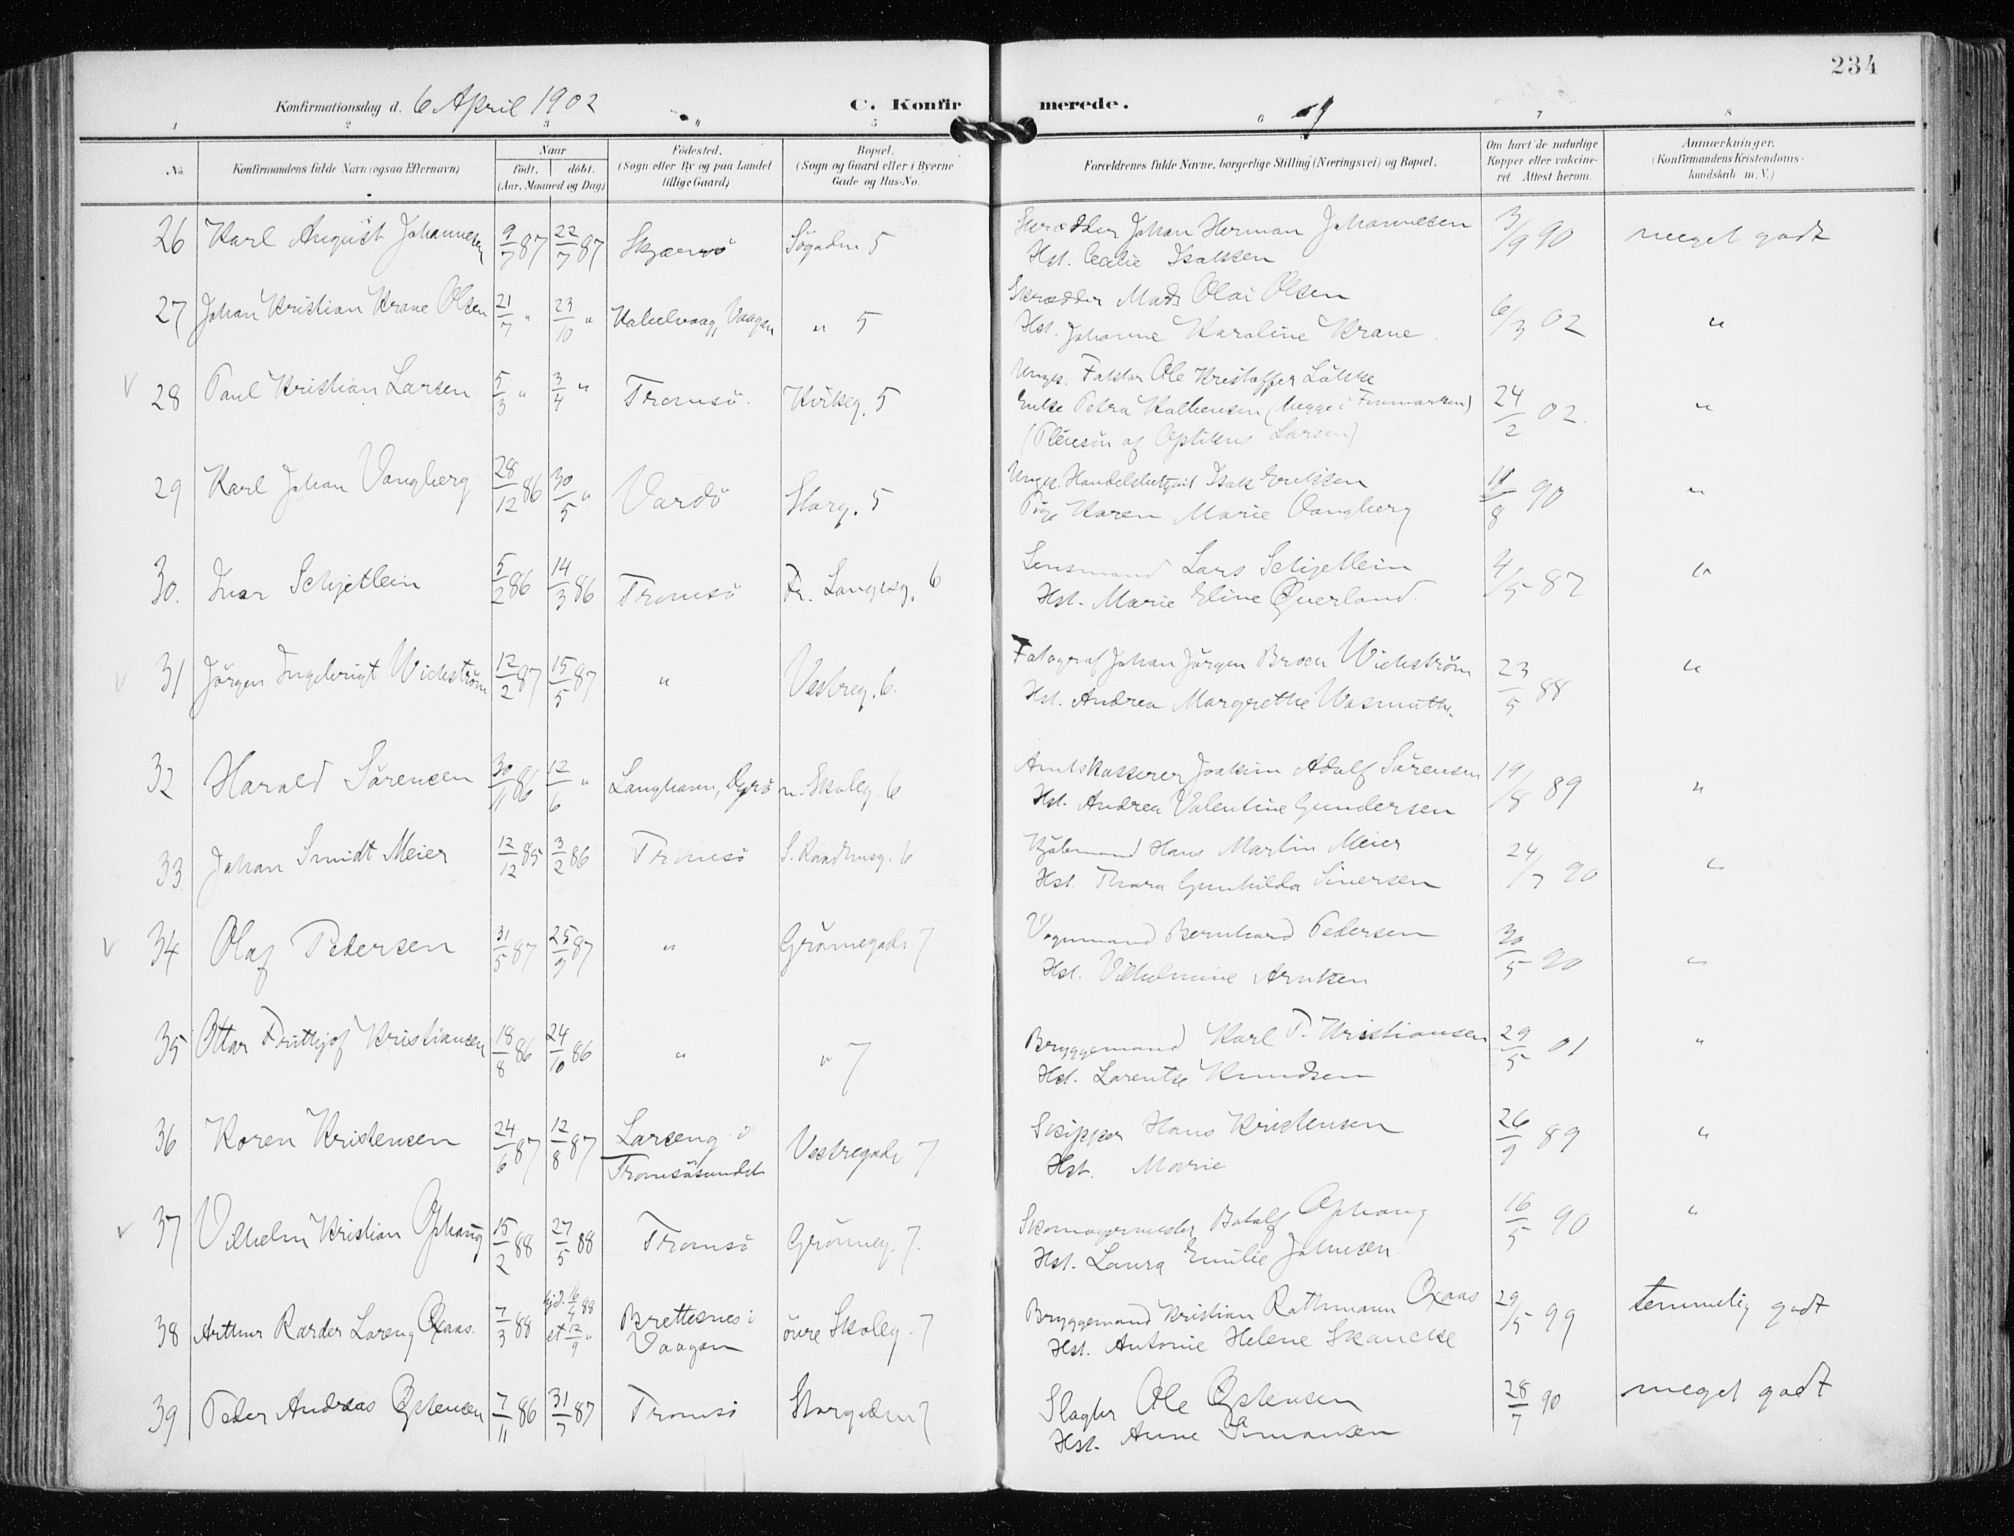 234
Konfirmationsdag d. 6 April 1902
C. Konfirmerede.
1 2 3 4 5 6 7 8
No.
Konfirmandens fulde Navn (ogsaa Efternavn)
Naar født. døbt. (Aar, Maaned og Dag)
Fødested. (Sogn eller By og paa Landet tillige Gaard)
Bopæl. (Sogn og Gaard eller i Byerne Gade og Hus-No.
Forældrenes fulde Navne, borgerlige Stilling (Næringsvei) og Bopæl.
Om havt de naturlige Kopper eller vakcineret Attest herom.
Anmærkninger. (Konfirmandens Kristendomskundskab m. V.)
26 Karl August Johannesen 9/7 87 22/7 87 Søgaden 5 Skrædder Johan Herman Johannesen 3/9 90 meget godt
Hst. Cecilie Isaksen
27 Johan Kristian Krane Olsen 21/7 " 23/10 " Kabelvaag, Vaagan " 5 Skrædder Mads Olai Olsen 6/3 02 "
Hst. Johanne Karoline Krane
28 Paul Kristian Larsen 5/3 " 3/4 " Tromsø. 5 Ungk. Faktor Ole Kristoffer Løkke 24/2 02 "
Enke Petra (begge i Finmarken)
(Pleiesøn af Larsen)
29 Karl Johan Vangberg 28/12 86 30/5 " Vardø Storg. 5 Ungk. Handelsbetjent Isak Eriksen 11/8 90 "
Pige Karen Marie Vangberg
30. Ivar Schjetlein 5/2 86 14/3 86 Tromsø Fr. Langesg. 6 Lensmand Lars Schjetlein 4/5 87 "
Hst. Marie Eline Qverland.
31 Jørgen Ingebrigt Wickstrøm 12/2 87 15/5 87 " Vestreg. 6. Fotograf Johan Jørgen Broch Wickstrøm 23/5 88 "
Hst. Andrea Margrethe Wasmuth.
32 Harald Sørensen 30/11 86 12/6 " Langhavn, Dyrø n. Skoleg. 6 Amtskasserer Joakim Adolf Sørensen 19/8 89 "
Hst. Andrea Valentine Gundersen
33 Johan Smidt Meier 12/12 85 3/2 86 Tromsø S. Raadhusg. 6 Kjøbmand Hans Martin Meier 24/7 90 "
Hst. Thora Gunhilda Siversen
34 Olaf Pedersen 31/5 87 25/9 87 " Grønnegade 7 Vognmand Bernhard Pedersen 30/5 90 "
Hst. Vilhelmine Arntsen
35 Ottar Frithjof Kristiansen 18/8 86 24/10 86 " " 7 Bryggemand Karl P. Kristiansen 29/5 01 "
Hst. Larentse Knudsen
36 Koren Kristensen 24/6 87 12/8 87 Larseng i Tromsøsundet Vestregade 7 Skipper Hans Kristensen 26/9 89 "
Hst. Marie
37 Vilhelm Kristian Ophaug 15/2 88 27/5 88 Tromsø Grønneg. 7. Skomagermester Botolf Ophaug 16/5 90 "
Hst. Laura Emilie Johnsen.
38 Arthur Rarder Loreng Oxaas. 7/3 88 hjd. 16/4 88 st 12/9 " Brettesnes i Vaagan øvre Skoleg. 7 Bryggemand Kristian Rathmann Oxaas 29/5 99 temmelig godt
Hst. Antonie Helene Skancke
39 Peder Andreas Østensen 7/11 86 31/7 87 Tromsø Storgaden 7 Slagter Ole Østensen 28/7 90 meget godt
Hst. Anne Simonsen